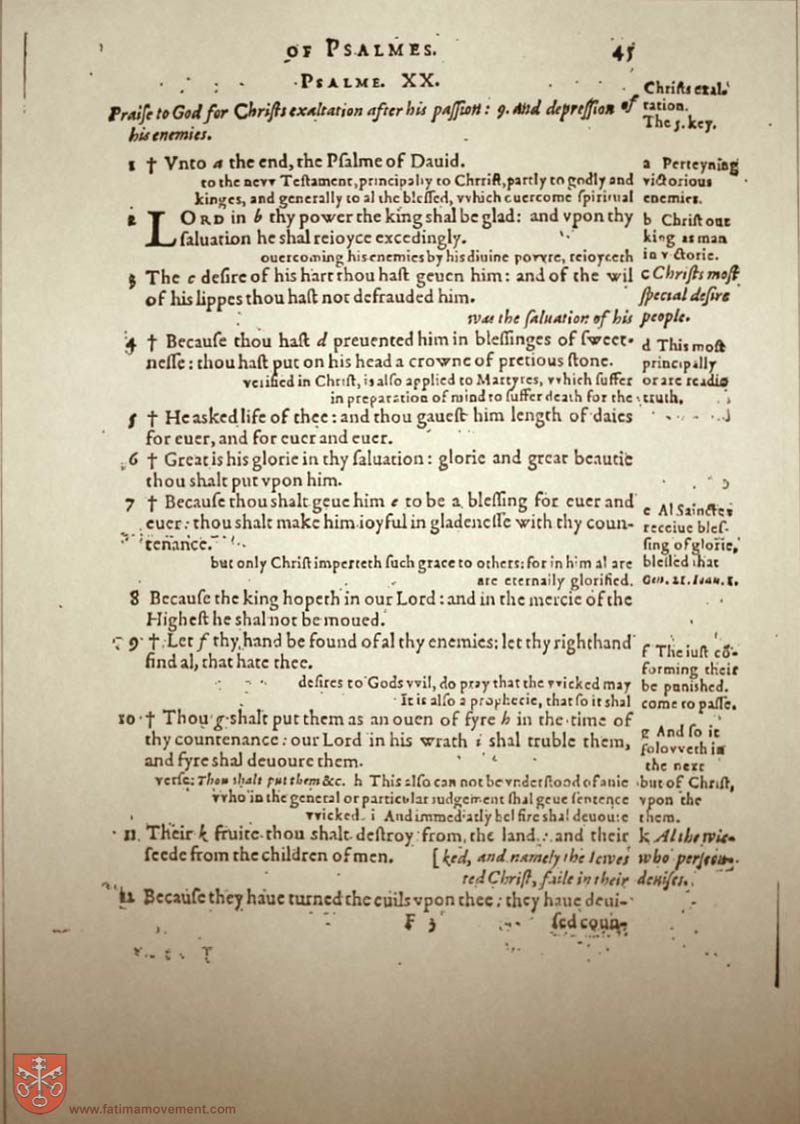 OF PSALMES. 45
PSALME. XX.
Praiſe to God for Chriſts exaltation after his paſſion: 9. And depreſſion of
his enemies.
Chriſts exal-
tation.
The 5. key.
1 † Vnto a the end, the Pſalme of Dauid.
a Perteyning
to the nevv Teſtament, principaly to Chriſt, partly to godly and victorious
kinges, and generally to al the bleſſed, vvhich euercome ſpiritual enemies.
2 LORD in b thy power the king shal be glad: and vpon thy
ſaluation he shal reioyce excedingly.
b Chriſt our
king as man
ouercoming his enemies by his diuine povvre, reioyceth in victorie.
3 The c deſire of his hart thou haſt geuen him: and of the wil
of his lippes thou haſt not defrauded him.
c Chriſts moſt
ſpecial deſire
was the ſaluation of his people.
4 † Becauſe thou haſt d preuented him in bleſſinges of ſweet-
neſſe: thou haſt put on his head a crowne of pretious ſtone.
d This moſt
principally
verified in Chriſt, is alſo applied to Martyres, vvhich ſuffer or are readie
in preparation of mind to ſuffer death for the truth.
5 † He asked life of thee: and thou gaueſt him length of daies
for euer, and for euer and euer.
6 † Great is his glorie in thy ſaluation: glorie and great beautie
thou shalt put vpon him.
7 † Becauſe thou shalt geue him e to be a bleſſing for euer and
euer: thou shalt make him ioyful in gladeneſſe with thy coun-
tenance.
e Al Sainctes
receiue bleſ-
ſing of glorie,
but only Chriſt imperteth ſuch grace to others: for in him al are bleſſed that
are eternaily glorified. Gen. 22. Ioan. 1.
8 Becauſe the king hopeth in our Lord: and in the mercie of the
Higheſt he shal not be moued.
9 † Let f thy hand be found of al thy enemies: let thy right hand
find al, that hate thee.
f The iuſt cõ-
forming their
deſires to Gods vvil, do pray that the vvicked may be punished.
It is alſo a prophecie, that ſo it shal come to paſſe.
10 † Thou g shalt put them as an ouen of fyre h in the time of
thy countenance: our Lord in his wrath i shal truble them,
and fyre shal deuoure them.
g And ſo it
folovveth in
the next
verſe: Thou shalt put them &c. h This alſo can not be vnderſtood of anie but of Chriſt,
vvho in the general or particular iudgement shal geue ſentence vpon the
vvicked. i And immediatly hel fire shal deuoure them.
11 Their k fruite thou shalt deſtroy from the land: and their
ſeede from the children of men.
k Al the wic-
[ked, and namely the Iewes who perſecu-
ted Chriſt, faile in their deuiſes.
12 Becauſe they haue turned the euils vpon thee: they haue deui-
F 3 ſed coun-
www.fatimamovement.com